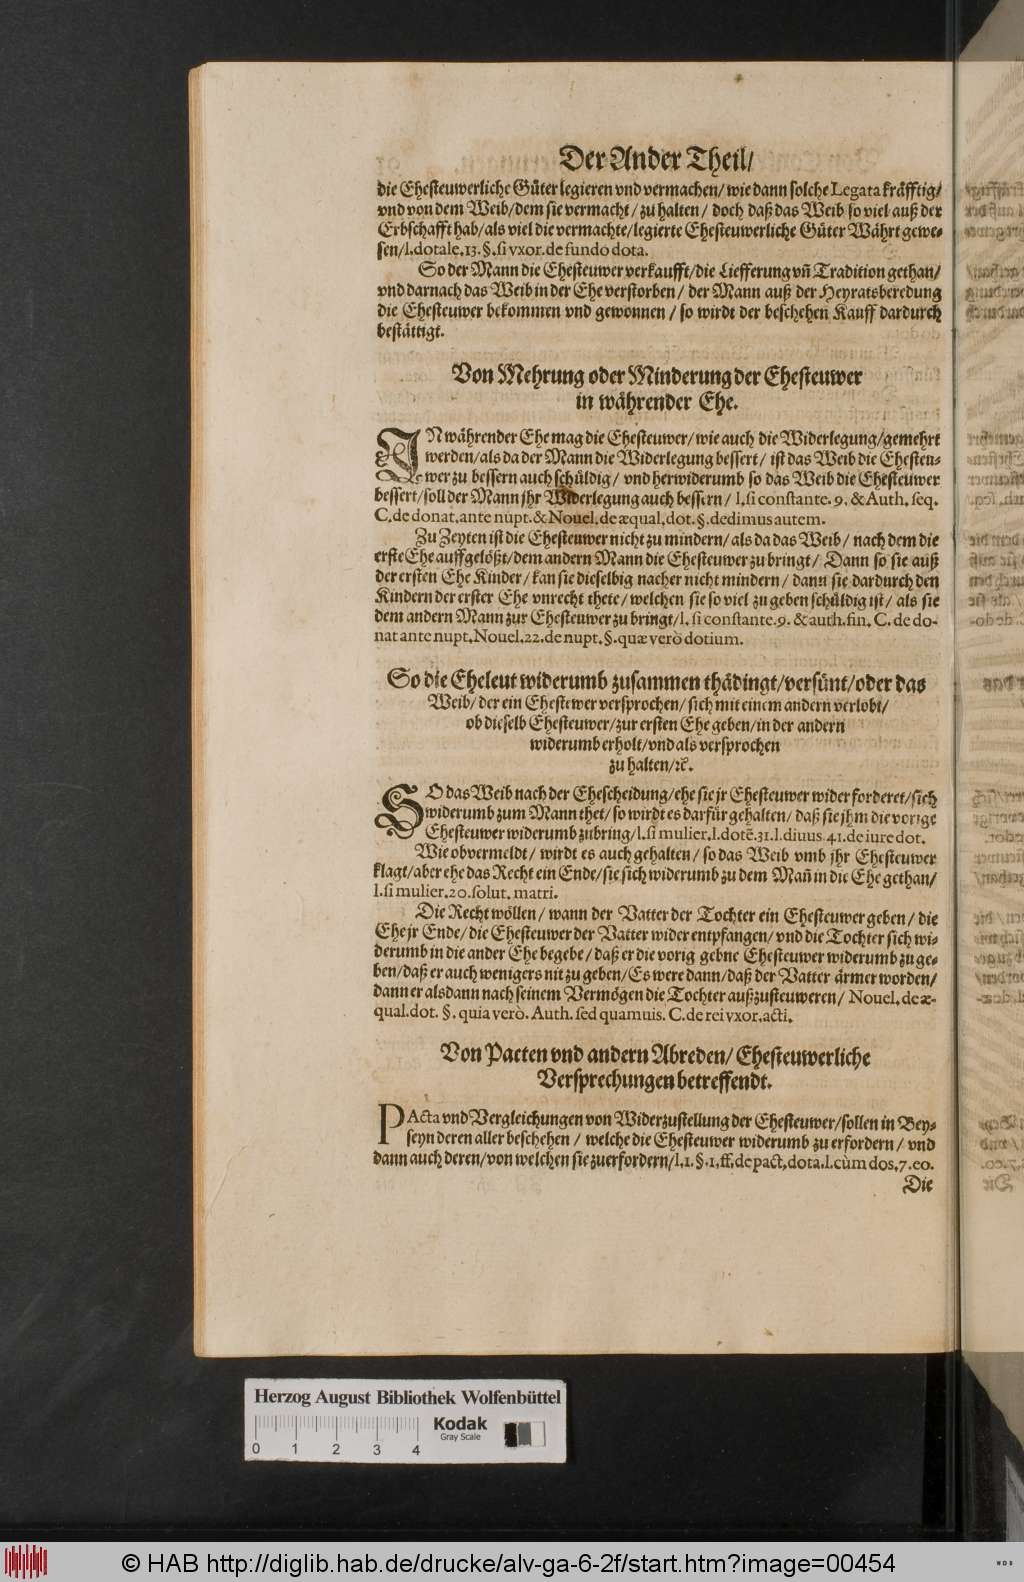 Der Ander Theil/
die Ehesteuwerliche Güter legieren vnd vermachen/ wie dann solche Legata kräfftig/
vnd von dem Weib/dem sie vermacht/ zu halten/ doch daß das Weib so viel auß der
Erbschafft hab/als viel die vermachte/legierte Ehesteuwerliche Güter Währt gewe-
sen/l.dotale.13.§.si vxor.de fundo dota.
So der Mann die Ehesteuwer verkaufft/die Liefferung vñ Tradition gethan/
vnd darnach das Weib in der Ehe verstorben/ der Mann auß der Heyratsberedung
die Ehesteuwer bekommen vnd gewonnen/ so wirdt der beschehen Kauff dardurch
bestättigt.
Von Mehrung oder Minderung der Ehesteuwer
in währender Ehe.
IN währender Ehe mag die Ehesteuwer/ wie auch die Widerlegung/gemehrt
werden/als da der Mann die Widerlegung bessert/ ist das Weib die Ehesteu-
wer zu bessern auch schüldig/ vnd herwiderumb so das Weib die Ehesteuwer
bessert/soll der Mann jhr Widerlegung auch bessern/ l.si constante.9.& Auth. seq.
C.de donat.ante nupt.& Nouel.de æqual.dot.§.dedimus autem.
Zu Zeyten ist die Ehesteuwer nicht zu mindern/als da das Weib/ nach dem die
erste Ehe auffgelößt/dem andern Mann die Ehesteuwer zu bringt/ Dann so sie auß
der ersten Ehe Kinder/ kan sie dieselbig nacher nicht mindern/ dann sie dardurch den
Kindern der erster Ehe vnrecht thete/ welchen sie so viel zu geben schüldig ist/ als sie
dem andern Mann zur Ehesteuwer zu bringt/l. si constante.9. & auth.fin. C. de do-
nat ante nupt.Nouel.22.de nupt.§.quæ verò dotium.
So die Eheleut widerumb zusammen thädingt/versünt/oder das
Weib/ der ein Ehestewer versprochen/ sich mit einem andern verlobt/
ob dieselb Ehesteuwer/zur ersten Ehe geben/in der andern
widerumb erholt/vnd als versprochen
zu halten/ꝛc̃.
SO das Weib nach der Ehescheidung/ehe sie jr Ehesteuwer wider forderet/sich
widerumb zum Mann thet/ so wirdt es darfür gehalten/ daß sie jhm die vorige
Ehesteuwer widerumb zubring/l.si mulier.l.dotẽ.31.l.diuus.41.de iure dot.
Wie obvermeldt/ wirdt es auch gehalten/ so das Weib vmb jhr Ehesteuwer
klagt/aber ehe das Recht ein Ende/sie sich widerumb zu dem Mañ in die Ehe gethan/
l.si mulier.20.solut. matri.
Die Recht wöllen/ wann der Vatter der Tochter ein Ehesteuwer geben/ die
Ehe jr Ende/die Ehesteuwer der Vatter wider entpfangen/ vnd die Tochter sich wi-
derumb in die ander Ehe begebe/ daß er die vorig gebne Ehesteuwer widerumb zu ge-
ben/daß er auch wenigers nit zu geben/Es were dann/daß der Vatter ärmer worden/
dann er alsdann nach seinem Vermögen die Tochter außzusteuweren/ Nouel.de æ-
qual.dot. §. quia verò. Auth. sed quamuis. C.de rei vxor.acti.
Von Pacten vnd andern Abreden/ Ehesteuwerliche
Versprechungen betreffendt.
PActa vnd Vergleichungen von Widerzustellung der Ehesteuwer/sollen in Bey-
seyn deren aller beschehen/ welche die Ehesteuwer widerumb zu erfordern/ vnd
dann auch deren/von welchen sie zuerfordern/l.1.§.1.ff.de pact.dota.l.cùm dos.7.eo.
Die
Herzog August Bibliothek Wolfenbüttel
Kodak
Gray Scale
0 1 2 3 4
© HAB http://diglib.hab.de/drucke/alv-ga-6-2f/start.htm?image=00454
WDB